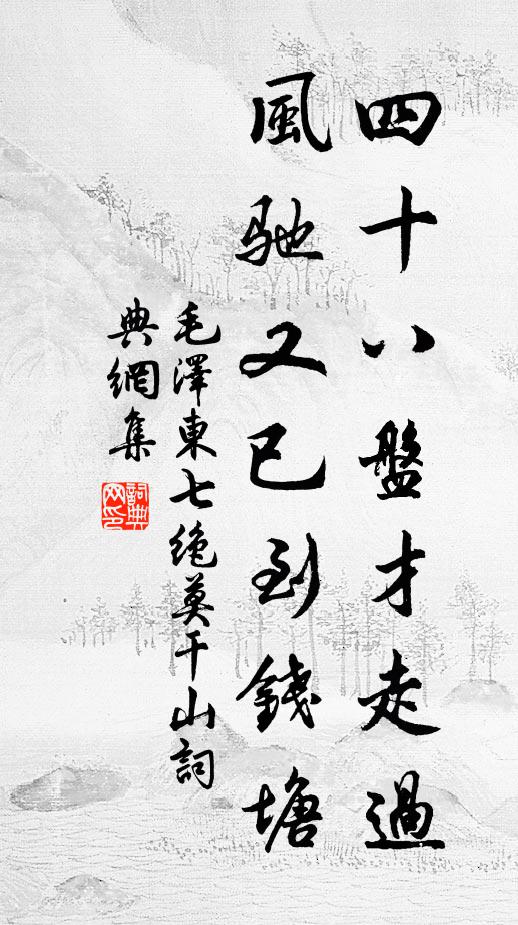 四十八盤才走過
風馳又已到錢塘
毛澤東七絶莫干山詞
典網集
詞典
网印